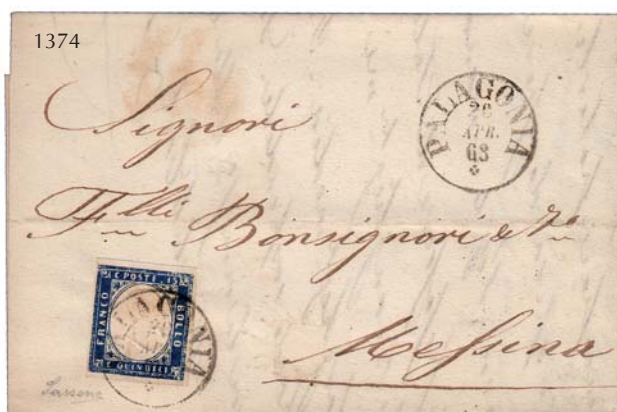 1374
PALAGONIA
26
APR.
63
Signori
F.lli Bonsignori &
Messina
C. POSTE 15
FRANCO
BOLLO
C. QUINDICI